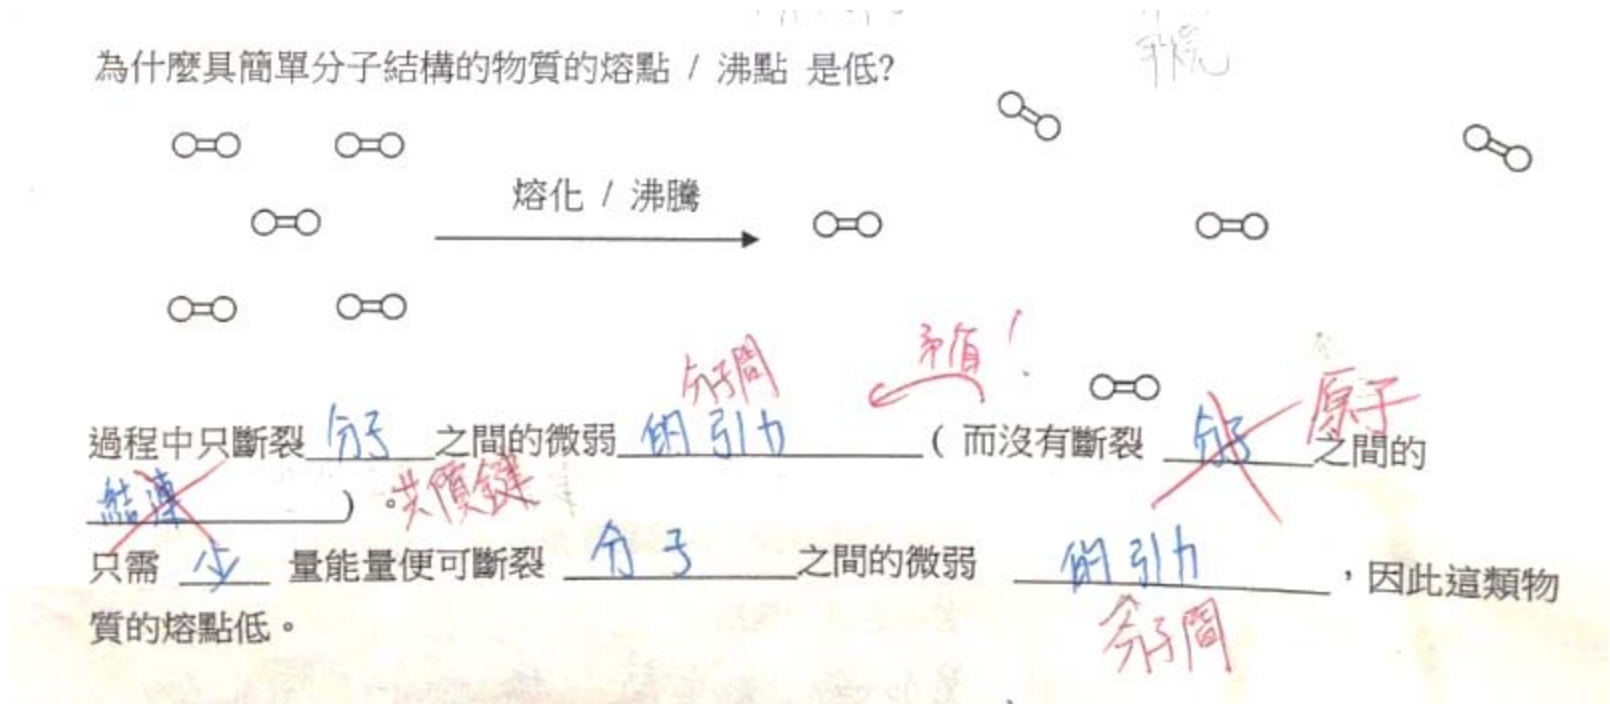 為什麼具簡單分子結構的物質的熔點 / 沸點 是低?
熔化 / 沸騰
矛盾!
分子間
原子
過程中只斷裂 分子 之間的微弱 的引力 ( 而沒有斷裂 分子 之間的
結連 ) 。共價鍵
只需 少 量能量便可斷裂 分子 之間的微弱 的引力 ,因此這類物
分子間
質的熔點低。